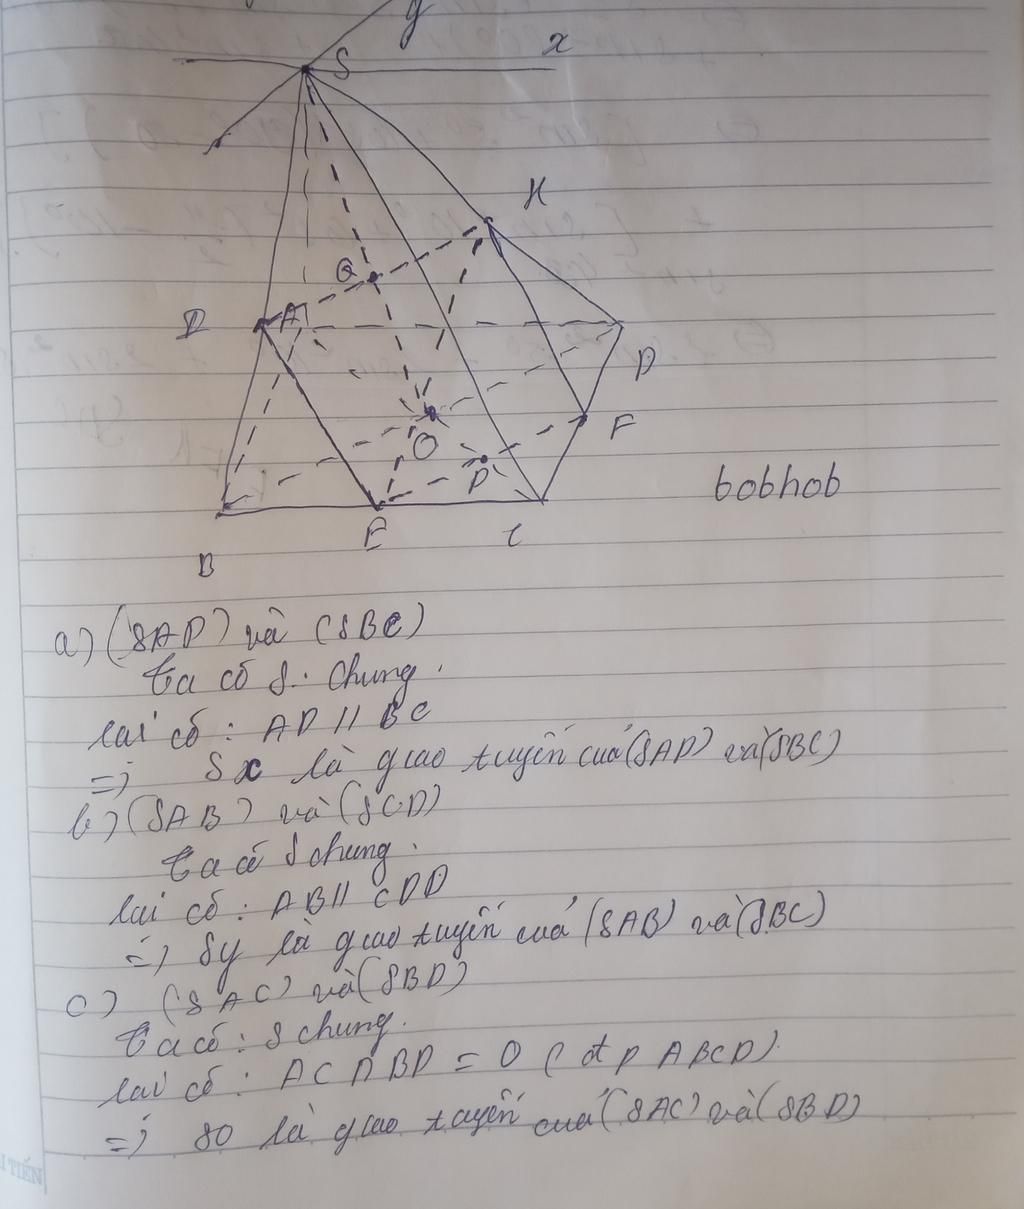 y
x
S
H
Q
I
A
D
O
F
P
bobhob
B
E
C
a) (SAD) và (SBC)
ta có S. chung.
lại có : AD // BC
=) Sx là giao tuyến của (SAD) và (SBC)
b) (SAB) và (SCD)
ta có S chung.
lại có : AB // CDD
=) Sy là giao tuyến của (SAB) và (SBC)
c) (SAC) và (SBD)
ta có : S chung.
lại có : AC ∩ BD = O ( đt p ABCD).
=) SO là giao tuyến của (SAC) và (SBD)
TIẾN